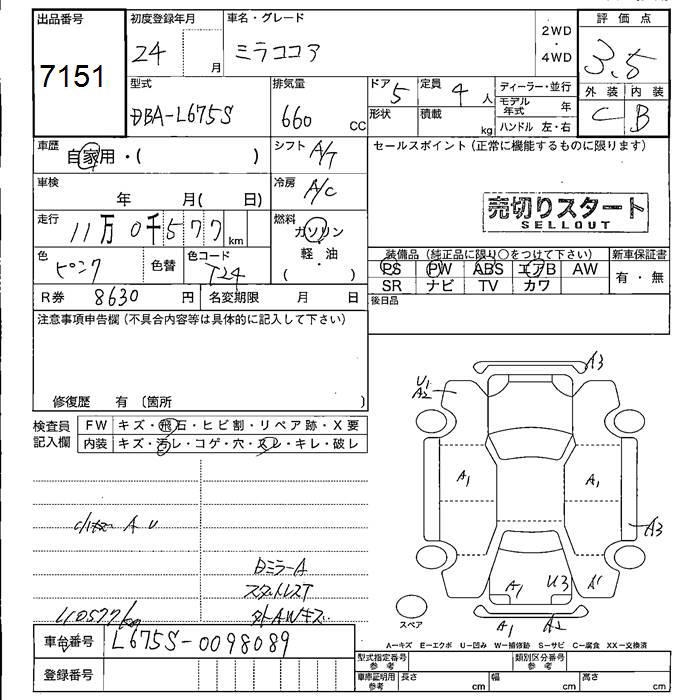 出品番号
7151
初度登録年月
24
月
車名・グレード
ミラココア
2WD
・
4WD
評価点
3.5
外装 内装
C B
型式
DBA-L675S
排気量
660
cc
ドア
5
定員
4
人
形状
積載
kg
ディーラー・並行
モデル年式
年
ハンドル 左・右
車歴
自家用・( )
シフト
A/T
セールスポイント (正常に機能するものに限ります)
車検
年 月( 日)
冷房
A/C
売切りスタート
SELLOUT
走行
11万0千577
km
燃料
ガソリン
・
軽・油
( )
色
ピンク
色替
色コード
T24
装備品 (純正品に限り○をつけて下さい)
PS PW ABS エアB AW
SR ナビ TV カワ
新車保証書
有・無
R券
8630
円
名変期限
月 日
後日品
注意事項申告欄 (不具合内容等は具体的に記入して下さい)
修復歴 有 〔箇所 〕
検査員
記入欄
FW
キズ・飛石・ヒビ割・リペア跡・X要
内装
キズ・汚レ・コゲ・穴・スレ・キレ・破レ
A3
U1
A2
A1
A1
A3
A U
ミラーA
スタットレスT
外AWキズ
A1
U3
A1
A1
A2
スペア
110577km
A−キズ E−エクボ U−凹み W−補修跡 S−サビ C−腐食 XX−交換済
車台番号
L675S-0098089
登録番号
型式指定番号
参考
類別区分番号
参考
車庫証明用
参考
長さ
cm
幅
cm
高さ
cm